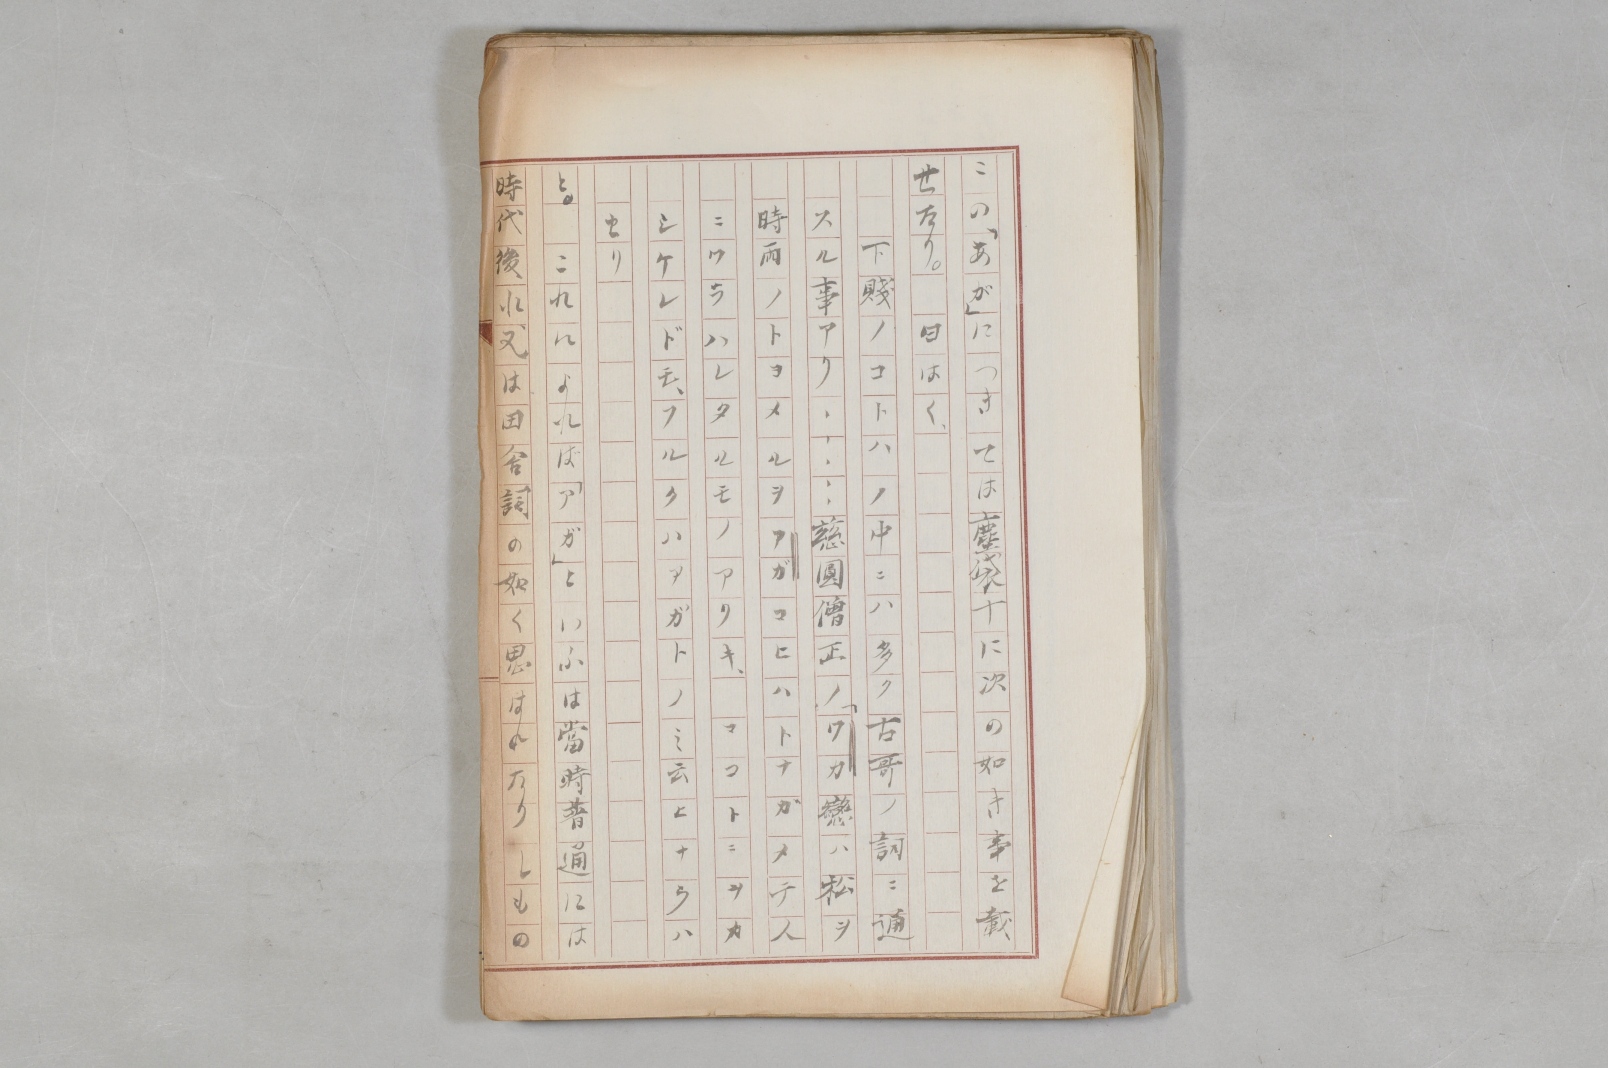 この「あが」につきては塵袋十に次の如き事を載
せたり。曰はく、
下賤ノコトハノ中ニハ多ク古哥ノ詞ニ通
スル事アリ、、、、、慈圓僧正ノ「ワカ戀ハ松ヲ
時雨ノトヨメルヲアガコヒハトナガメテ人
ニワラハレタルモノアリキ、マコトニヲカ
シケレドモ、フルクハアガトノミ云ヒナラハ
セリ
と。これによれば「アガ」といふは當時普通には
時代後れ又は田舎詞の如く思はれたりしもの